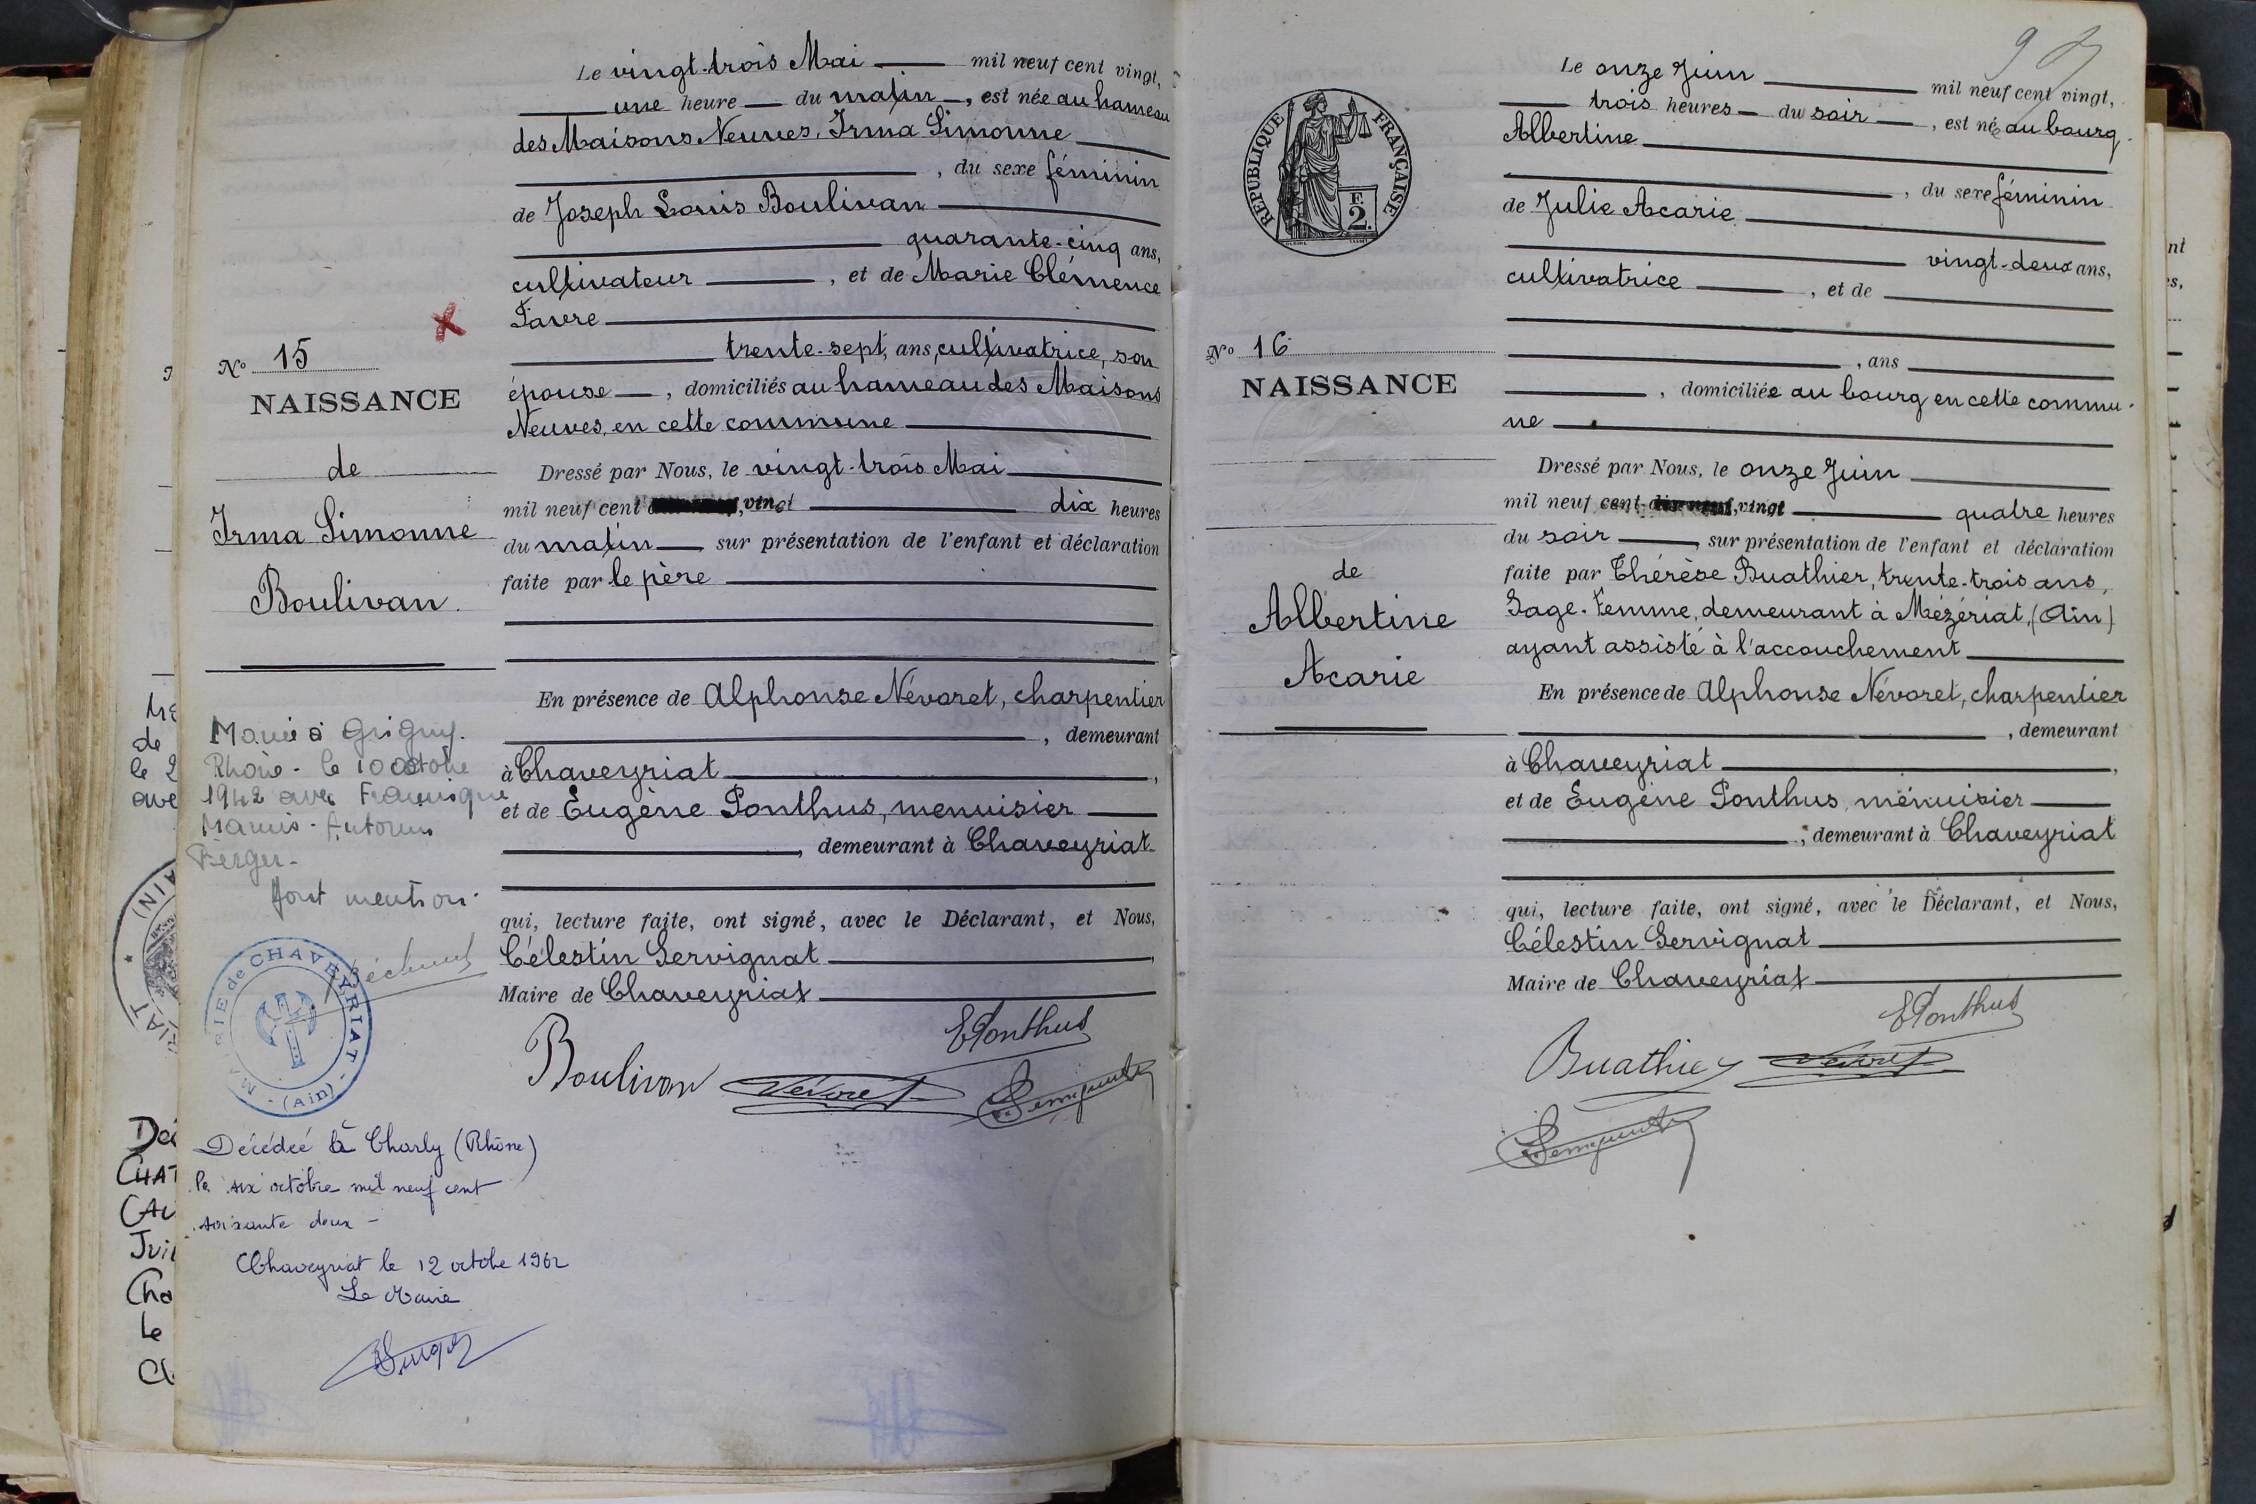 Le vingt-trois Mai mil neuf cent vingt,
une heure du matin, est née au hameau
des Maisons Neuves, Irma Simonne
, du sexe féminin
de Joseph Louis Boulivan
quarante-cinq ans,
cultivateur, et de Marie Clémence
Favre
trente-sept, ans, cultivatrice, son
épouse, domiciliés au hameau des Maisons
Neuves, en cette commune
Dressé par Nous, le vingt-trois Mai
mil neuf cent vingt dix heures
du matin sur présentation de l'enfant et déclaration
faite par le père
En présence de Alphonse Névoret, charpentier
, demeurant
à Chaveyriat,
et de Eugène Ponthus, menuisier
, demeurant à Chaveyriat
qui, lecture faite, ont signé, avec le Déclarant, et Nous,
Célestin Servignat,
Maire de Chaveyriat
EPonthus
Boulivan
Névoret
No 15
NAISSANCE
de
Irma Simonne
Boulivan.
Marié à Grigny.
Rhône - le 10 octobre
1942 avec Françisque
Marius - Antonin
Berger -
dont mention.
MAIRIE de CHAVEYRIAT - (Ain) -
Décédée à Charly (Rhône)
le six octobre mil neuf cent
soixante deux -
Chaveyriat le 12 octobre 1962
Le Maire
9
Le onze Juin mil neuf cent vingt,
trois heures du soir, est née au bourg
Albertine
, du sexe féminin
de Julie Acarie
vingt-deux ans,
cultivatrice, et de
, ans
, domiciliée au bourg en cette commu-
ne
Dressé par Nous, le onze Juin
mil neuf cent dix-neuf, vingt quatre heures
du soir, sur présentation de l'enfant et déclaration
faite par Thérèse Buathier, trente-trois ans,
Sage-Femme, demeurant à Mézériat, (Ain)
ayant assisté à l'accouchement
En présence de Alphonse Névoret, charpentier
, demeurant
à Chaveyriat,
et de Eugène Ponthus, menuisier
, demeurant à Chaveyriat
qui, lecture faite, ont signé, avec le Déclarant, et Nous,
Célestin Servignat
Maire de Chaveyriat
EPonthus
Buathier Névoret
RÉPUBLIQUE FRANÇAISE
F.
2.
No 16
NAISSANCE
de
Albertine
Acarie
de
le 2
ave
AIN)
RIAT
Déc
CHAT
Juil
Cha
le